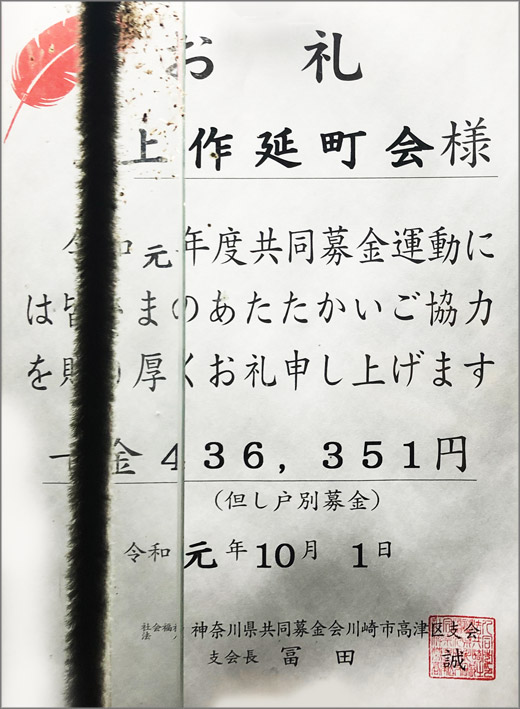 お礼
上作延町会様
令和元年度共同募金運動に
は皆さまのあたたかいご協力
を賜り厚くお礼申し上げます
一金436,351円
(但し戸別募金)
令和元年10月1日
社会福祉法人 神奈川県共同募金会川崎市高津区支会
支会長 冨田 誠